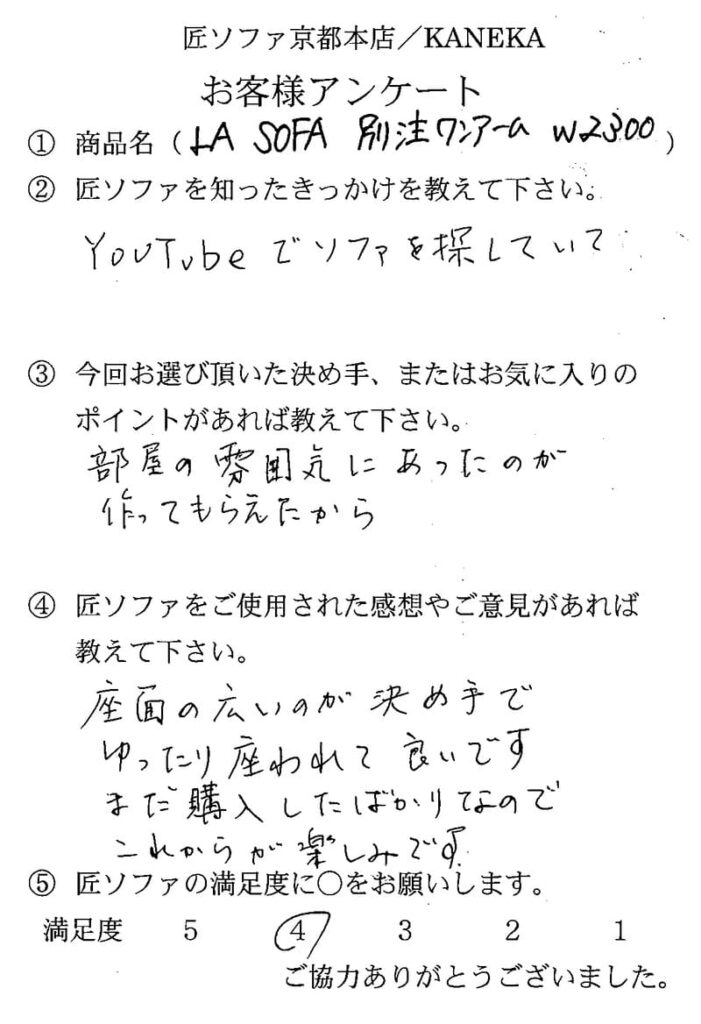 匠ソファ京都本店／KANEKA
お客様アンケート
① 商品名（LA SOFA 別注ワンアーム W2300）
② 匠ソファを知ったきっかけを教えて下さい。
YouTubeでソファを探していて
③ 今回お選び頂いた決め手、またはお気に入りの
ポイントがあれば教えて下さい。
部屋の雰囲気にあったのが
作ってもらえたから
④ 匠ソファをご使用された感想やご意見があれば
教えて下さい。
座面の広いのが決め手で
ゆったり座われて良いです
まだ購入したばかりなので
これからが楽しみです
⑤ 匠ソファの満足度に〇をお願いします。
満足度 5 4 3 2 1
ご協力ありがとうございました。